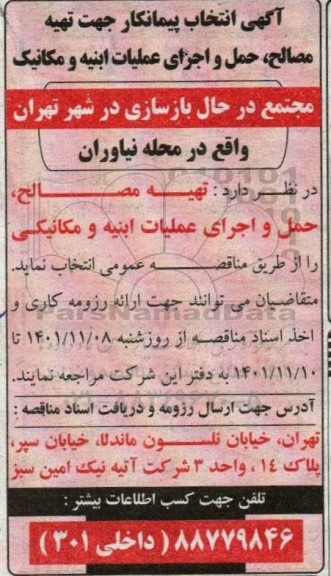 آگهی انتخاب پیمانکار جهت تهیه
مصالح، حمل و اجرای عملیات ابنیه و مکانیک
مجتمع در حال بازسازی در شهر تهران
واقع در محله نیاوران
در نظر دارد : تهیه مصالح،
حمل و اجرای عملیات ابنیه و مکانیکی
را از طریق مناقصه عمومی انتخاب نماید.
متقاضیان می توانند جهت ارائه رزومه کاری و
اخذ اسناد مناقصه از روزشنبه ۱۴۰۱/۱۱/۰۸ تا
۱۴۰۱/۱۱/۱۰ به دفتر این شرکت مراجعه نمایند.
آدرس جهت ارسال رزومه و دریافت اسناد مناقصه :
تهران، خیابان نلسون ماندلا، خیابان سپر،
پلاک ۱۴ ، واحد ۳ شرکت آتیه نیک امین سبز
تلفن جهت کسب اطلاعات بیشتر :
۸۸۷۷۹۸۴۶ ( داخلی ۳۰۱ )
ParsNamadData